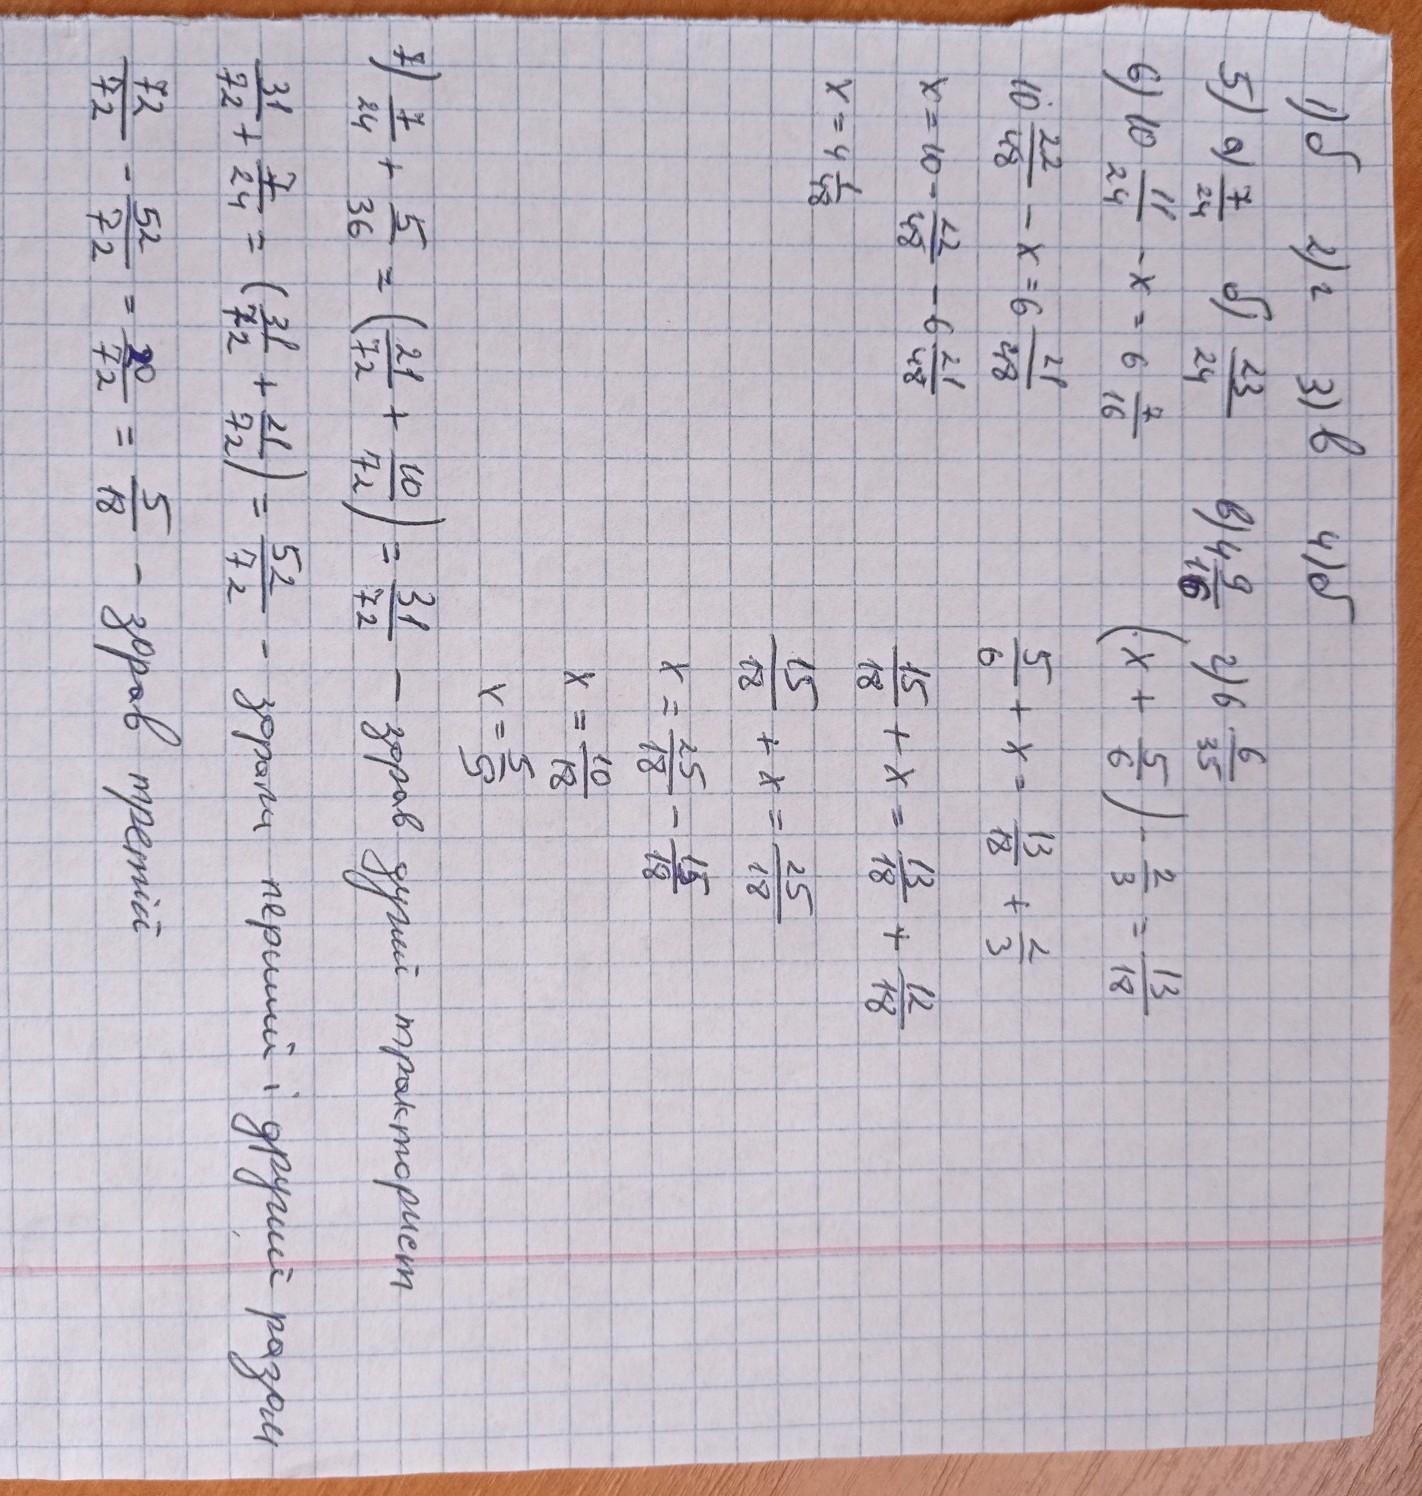 1) б 2) г 3) в 4) б
5) а) 7/24 б) 23/24 в) 4 9/16 г) 6 6/35
6) 10 11/24 - x = 6 7/16
10 22/48 - x = 6 21/48
x = 10 - 22/48 - 6 21/48
x = 4 1/48
(x + 5/6) - 2/3 = 13/18
5/6 + x = 13/18 + 2/3
15/18 + x = 13/18 + 12/18
15/18 + x = 25/18
x = 25/18 - 15/18
x = 10/18
x = 5/9
7) 7/24 + 5/36 = (21/72 + 10/72) = 31/72 - зорав другий тракторист
31/72 + 7/24 = (31/72 + 21/72) = 52/72 - зорали перший і другий разом
72/72 - 52/72 = 20/72 = 5/18 - зорав третій